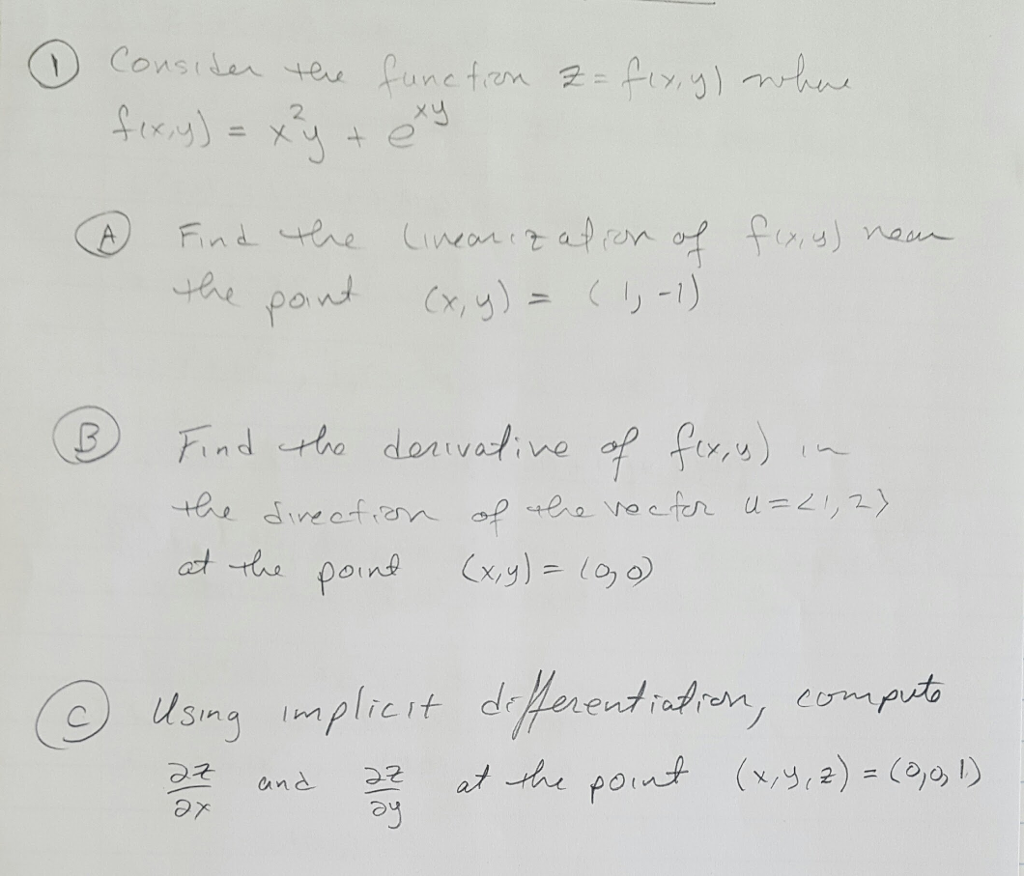 ① Consider the function z = f(x,y) where
f(x,y) = x²y + e^xy
Ⓐ Find the linearization of f(x,y) near
the point (x,y) = (1,-1)
Ⓑ Find the derivative of f(x,y) in
the direction of the vector u=<1,2>
at the point (x,y) = (0,0)
Ⓒ Using implicit differentiation, compute
∂z/∂x and ∂z/∂y at the point (x,y,z) = (0,0,1)